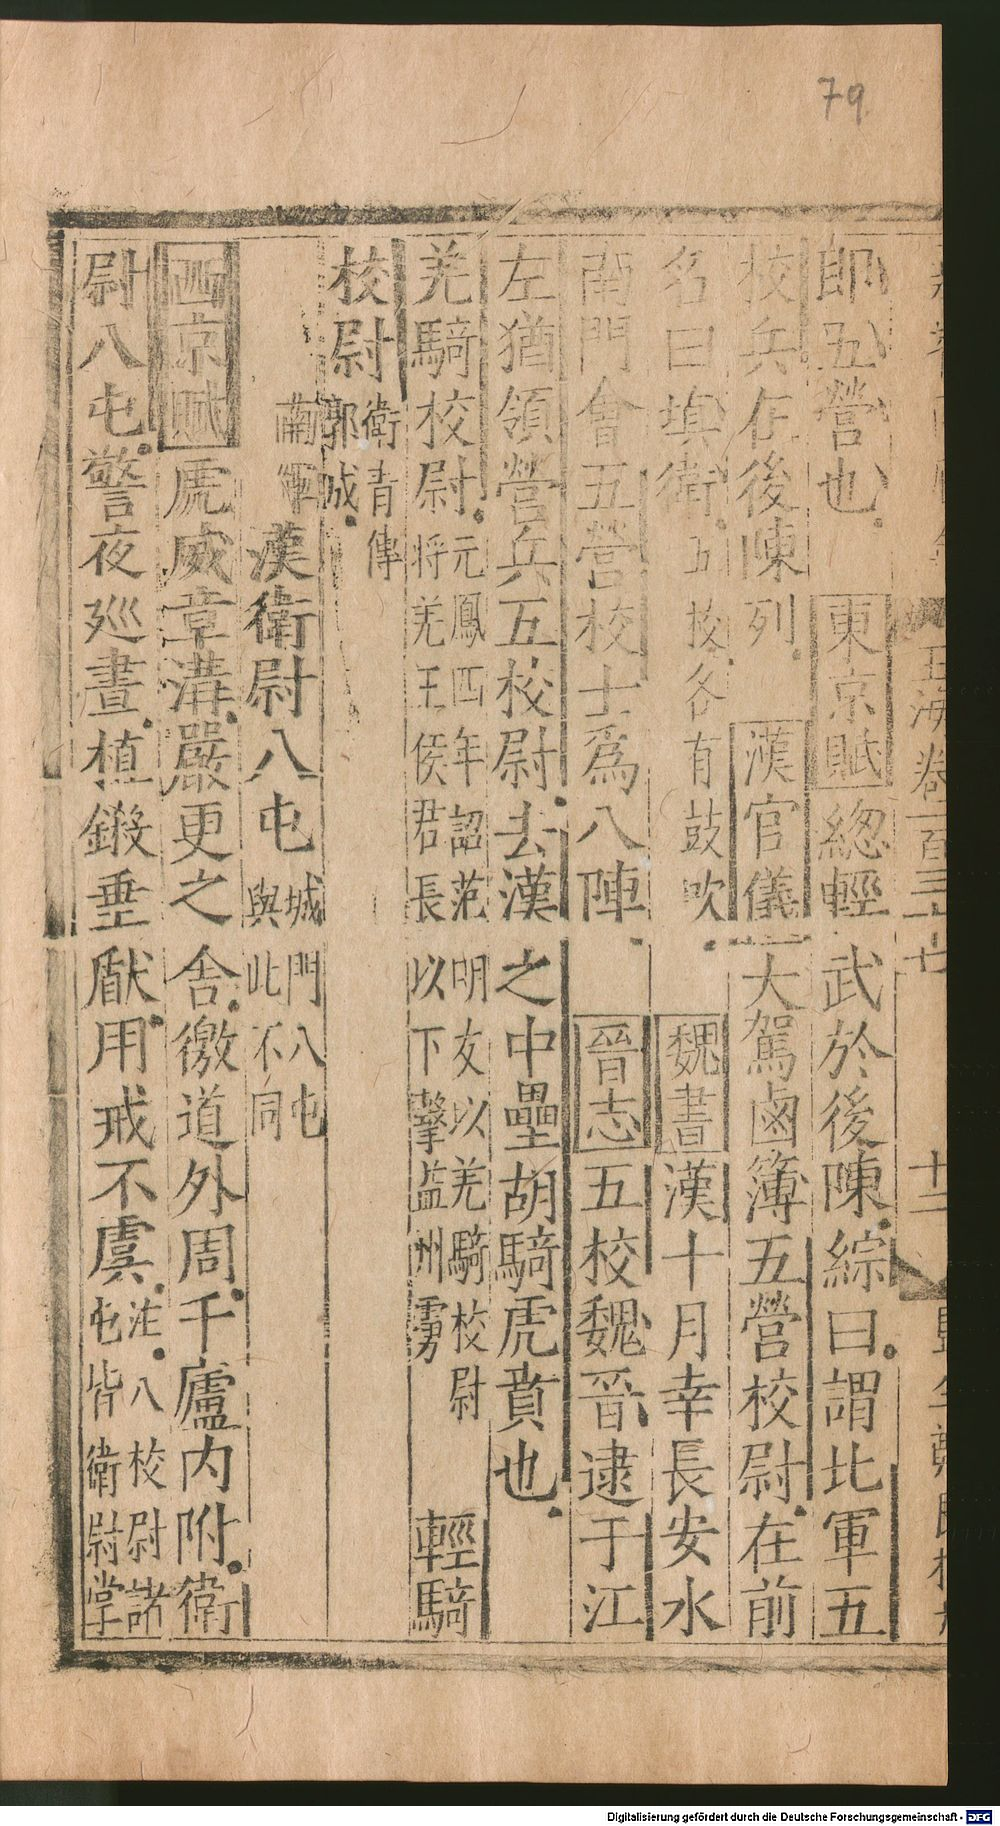 79
玉海卷一百三十七
十二
即五營也東京賦總輕武於後陳綜曰謂北軍五
校兵在後陳列漢官儀大駕鹵簿五營校尉在前
名曰填衛五校各有鼓吹魏書漢十月幸長安水
南門會五營校士爲八陣晉志五校魏晉逮于江
左猶領營兵五校尉去漢之中壘胡騎虎賁也
羌騎校尉元鳳四年詔范明友以羌騎校尉
将羌王侯君長以下擊益州虜輕騎
校尉衛青傳
郭成
南軍漢衛尉八屯城門八屯
與此不同
西京賦虎威章溝嚴更之舍徼道外周千廬内附衛
尉八屯警夜廵晝植鎩垂猒用戒不虞注八校尉諸
屯皆衛尉掌
Digitalisierung gefördert durch die Deutsche Forschungsgemeinschaft - DFG